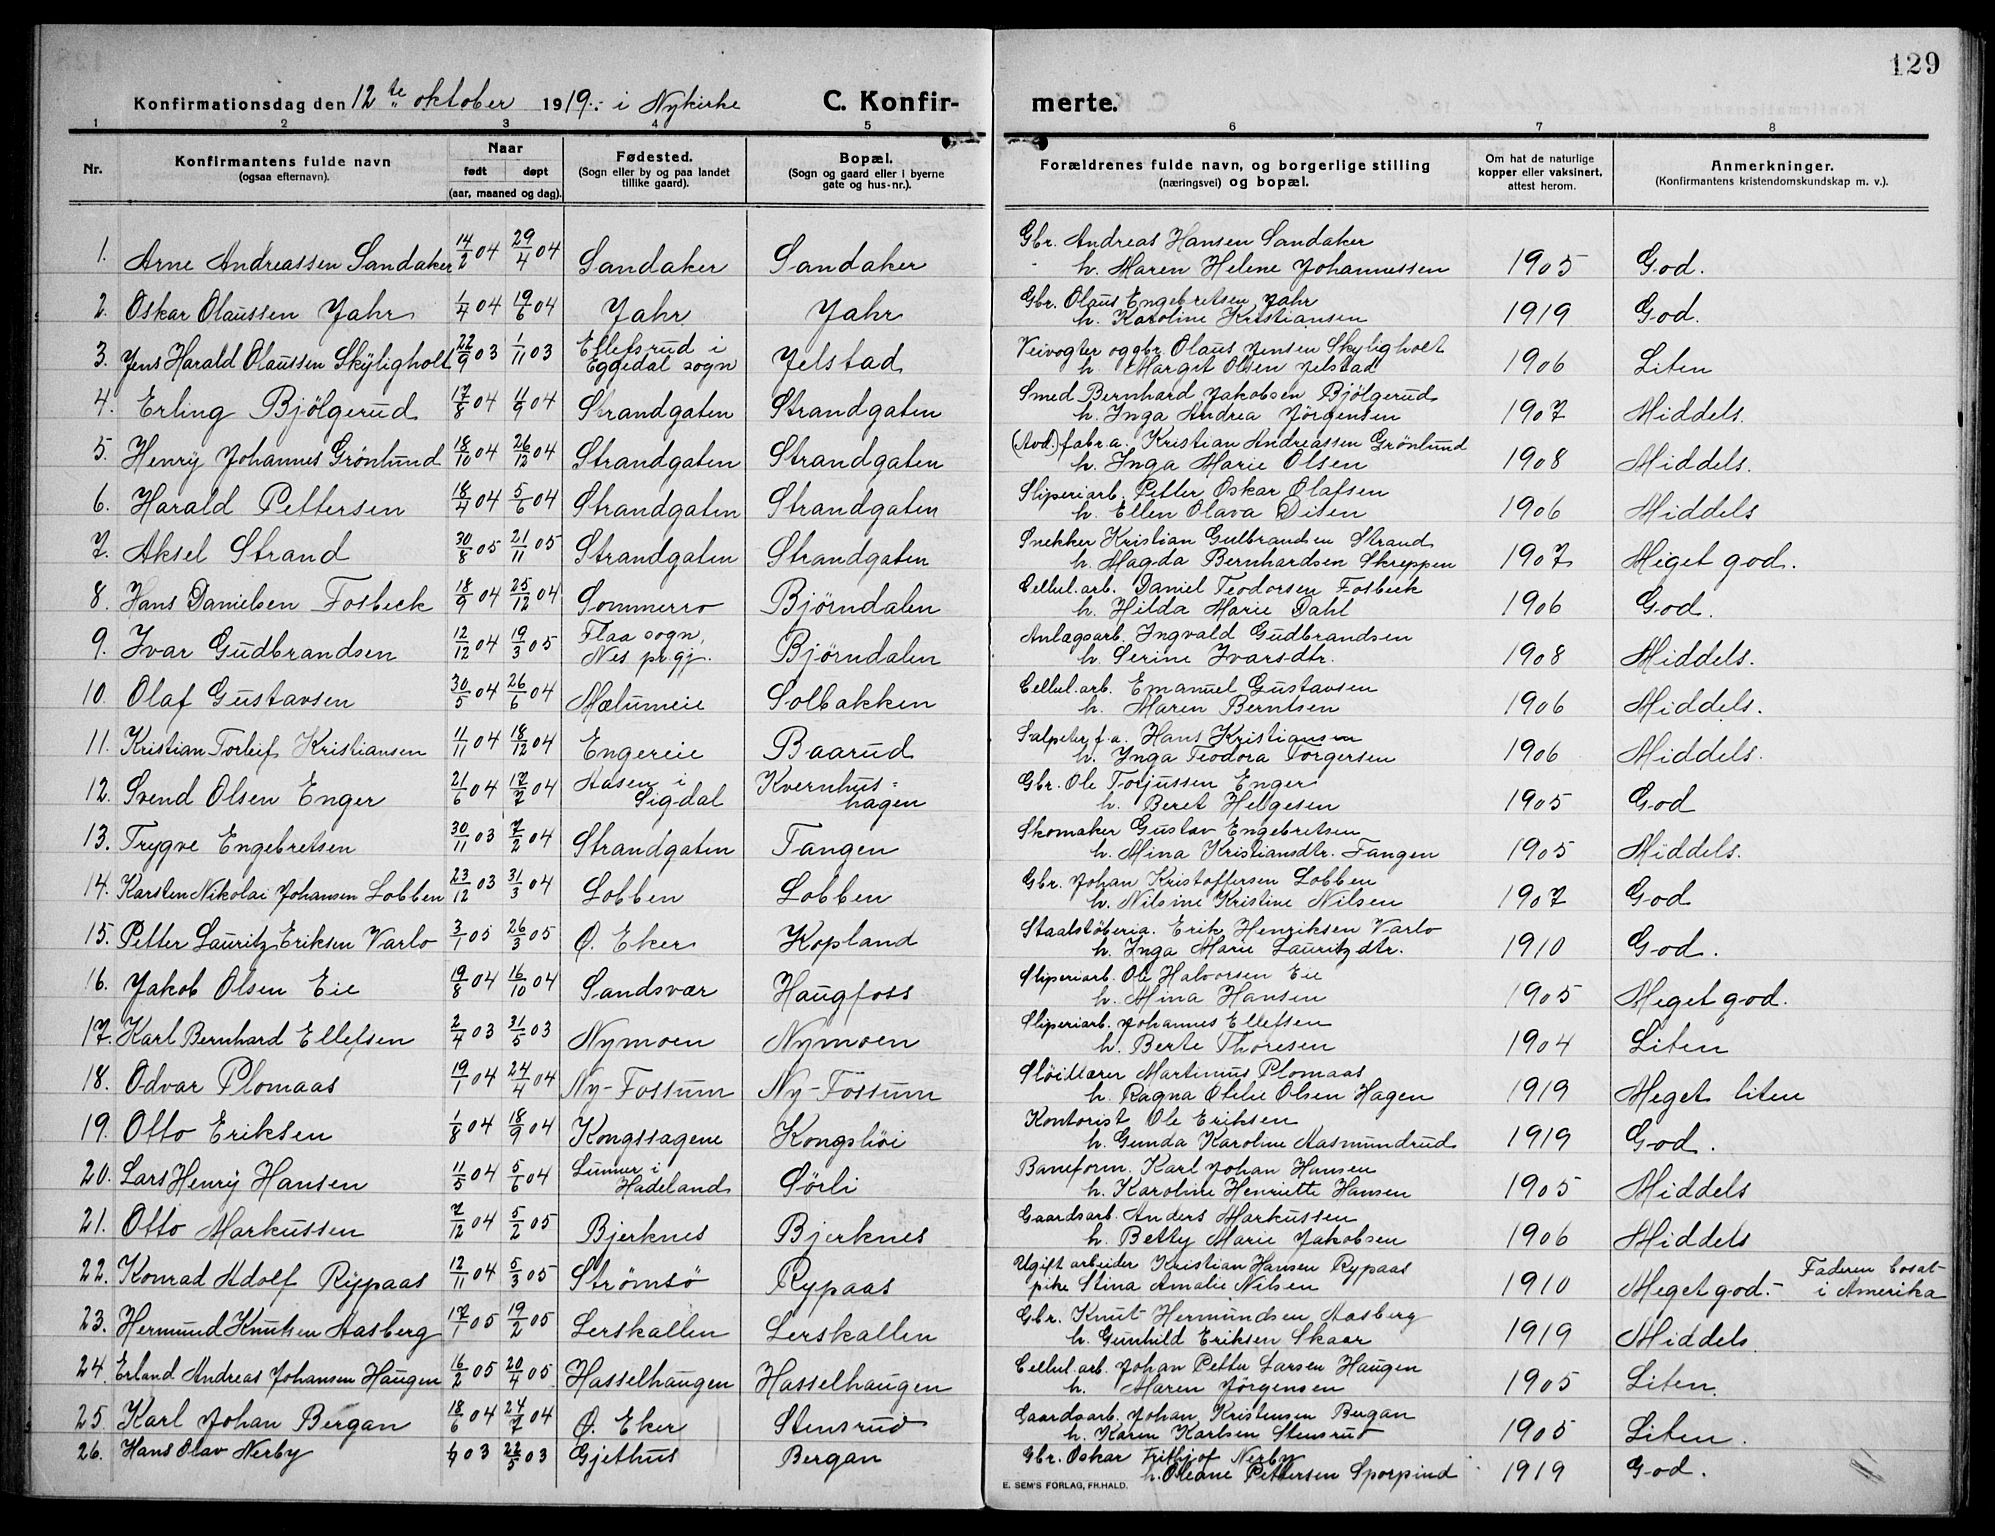 129
Konfirmationsdag den 12te oktober 1919. i Nykirke C. Konfirmerte.
1 2 3 4 5 6 7 8
Nr. Konfirmantens fulde navn (ogsaa efternavn). Naar født døpt (aar, maaned og dag). Fødested. (Sogn eller by og paa landet tillike gaard). Bopæl. (Sogn og gaard eller i byerne gate og hus-nr.). Forældrenes fulde navn, og borgerlige stilling (næringsvei) og bopæl. Om hat de naturlige kopper eller vaksinert, attest herom. Anmerkninger. (Konfirmantens kristendomskundskap m. v.).
1. Arne Andreassen Sandaker 14/2 04 29/4 04 Sandaker Sandaker Gbr. Andreas Hansen Sandaker
h. Maren Helene Johannessen 1905 God.
2. Oskar Olaussen Jahr 1/4 04 19/6 04 Jahr Jahr Gbr. Olaus Engebretsen Jahr
h. Karoline Kristiansen 1919 God.
3. Jens Harald Olaussen Skyligholt 22/9 03 1/11 03 Ellefsrud i Eggedal sogn Jelstad Veivogter og gbr. Olaus Jensen Skyligholt
h. Margit Olsen Jelstad 1906 Liten
4. Erling Bjölgerud 17/8 04 11/9 04 Strandgaten Strandgaten Smed Bernhard Jakobsen Bjölgerud
h. Inga Andrea Jørgensen 1907 Middels.
5. Henry Johannes Grönlund 18/10 04 26/12 04 Strandgaten Strandgaten (Avd.) fabr.a. Kristian Andreassen Grönlund
h. Inga Marie Olsen 1908 Middels.
6. Harald Pettersen 18/4 04 5/6 04 Strandgaten Strandgaten Sliperiarb. Petter Oskar Olafsen
h. Ellen Olava Disen 1906 Middels
7. Aksel Strand 30/8 05 21/11 05 Strandgaten Strandgaten Snekker Kristian Gulbrandsen Strand
h. Magda Bernhardsen Skreppen 1907 Meget god.
8. Hans Danielsen Fosbeck 18/9 04 25/12 04 Sommerro Bjørndalen Cellul. arb. Daniel Teodorsen Fosbeck
h. Hilda Marie Dahl 1906 God.
9. Ivar Gudbrandsen 12/12 04 19/3 05 Flaa sogn, Nes pr.gj. Bjørndalen Anlægsarb. Ingvald Gudbrandsen
h. Serine Ivarsdtr. 1908 Middels.
10. Olaf Gustavsen 30/5 04 26/6 04 Mælumeie Solbakken Cellul. arb. Emanuel Gustavsen
h. Maren Berntsen 1906 Middels.
11. Kristian Torleif Kristiansen 11/11 04 18/12 04 Engereie Baarud Salpeter f.a. Hans Kristiansen
h. Inga Teodora Torgersen 1906 Middels.
12. Svend Olsen Enger 21/6 04 17/7 04 Aasen i Sigdal Kvernhushagen Gbr. Ole Torjussen Enger
h. Beret Helgesen 1905 God
13. Trygve Engebretsen 30/11 03 7/2 04 Strandgaten Tangen Skomaker Gustav Engebretsen
h. Mina Kristiansdtr. Tangen 1905 Middels.
14. Karsten Nikolai Johansen Lobben 23/12 03 31/3 04 Lobben Lobben Gbr. Johan Kristoffersen Lobben
h. Nilsine Kristine Nilsen 1907 God
15. Petter Lauritz Eriksen Varlo 3/1 05 26/3 05 Ø. Eker Kopland Staalstöberia. Erik Henriksen Varlo
h. Inga Marie Lauritzdtr. 1910 God.
16. Jakob Olsen Eie 19/8 04 16/10 04 Sandsvær Haugfoss Sliperiarb. Ole Halvorsen Eie
h. Mina Hansen 1905 Meget god.
17. Karl Bernhard Ellefsen 2/4 03 31/5 03 Nymoen Nymoen Sliperiarb. Johannes Ellefsen
h. Berte Thoresen 1904 Liten
18. Odvar Plomaas 19/1 04 24/4 04 Ny-Fossum Ny-Fossum Sløilærer Martinus Plomaas
h. Ragna Otelie Olsen Hagen 1919 Meget liten
19. Otto Eriksen 1/8 04 18/9 04 Kongssagene Kongshøi Kontorist Ole Eriksen
h. Gunda Karoline Aasmundrud 1919 God.
20. Lars Henry Hansen 11/5 04 5/6 04 Lunner i Hadeland Sørli Baneform. Karl Johan Hansen
h. Karoline Henriette Hansen 1905 Middels
21. Otto Markussen 7/12 04 5/2 05 Bjerknes Bjerknes Gaardsarb. Anders Markussen
h. Betty Marie Jakobsen 1906 Middels
22. Konrad Adolf Rypaas 12/11 04 5/3 05 Strømsö Rypaas Ugift arbeider Kristian Hansen Rypaas
pike Stina Amalie Nilsen 1910 Meget god. - Faderen bosat i Amerika
23. Hermund Knutsen Aasberg 17/1 05 19/2 05 Lerskallen Lerskallen Gbr. Knut Hermundsen Aasberg
h. Gunhild Eriksen Skaar 1919 Middels
24. Erland Andreas Johansen Haugen 16/2 05 20/4 05 Hasselhaugen Hasselhaugen Cellul. arb. Johan Petter Larsen Haugen
h. Maren Jørgensen 1905 Liten.
25. Karl Johan Bergan 18/6 04 24/7 04 Ø. Eker Stensrud Gaardsarb. Johan Kristensen Bergan
h. Karen Karlsen Stensrud 1905 Liten.
26. Hans Olav Nerby 03 22/5 03 Gjethus Bergan Gbr. Oskar Fritjof Nerby
h. Oleane Pettersen Sporpind 1919 God.
E. SEM'S FORLAG, FR.HALD.